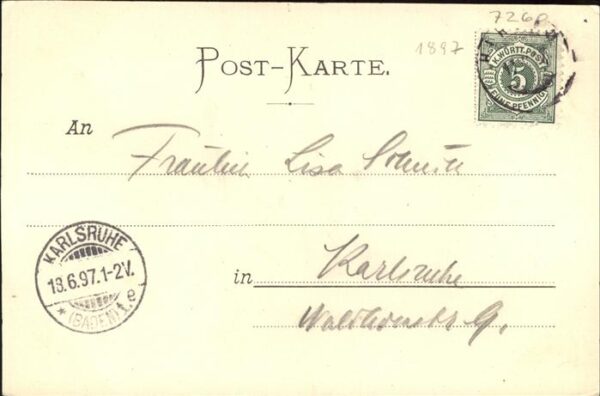 726p
1897
POST-KARTE.
K. WÜRTT. POST
5
FÜNF PFENNIG
An
Fräulein Lisa Schmitt
KARLSRUHE
13.6.97.1-2V.
* (BADEN) * e
in Karlsruhe
Waldhornstr 9.